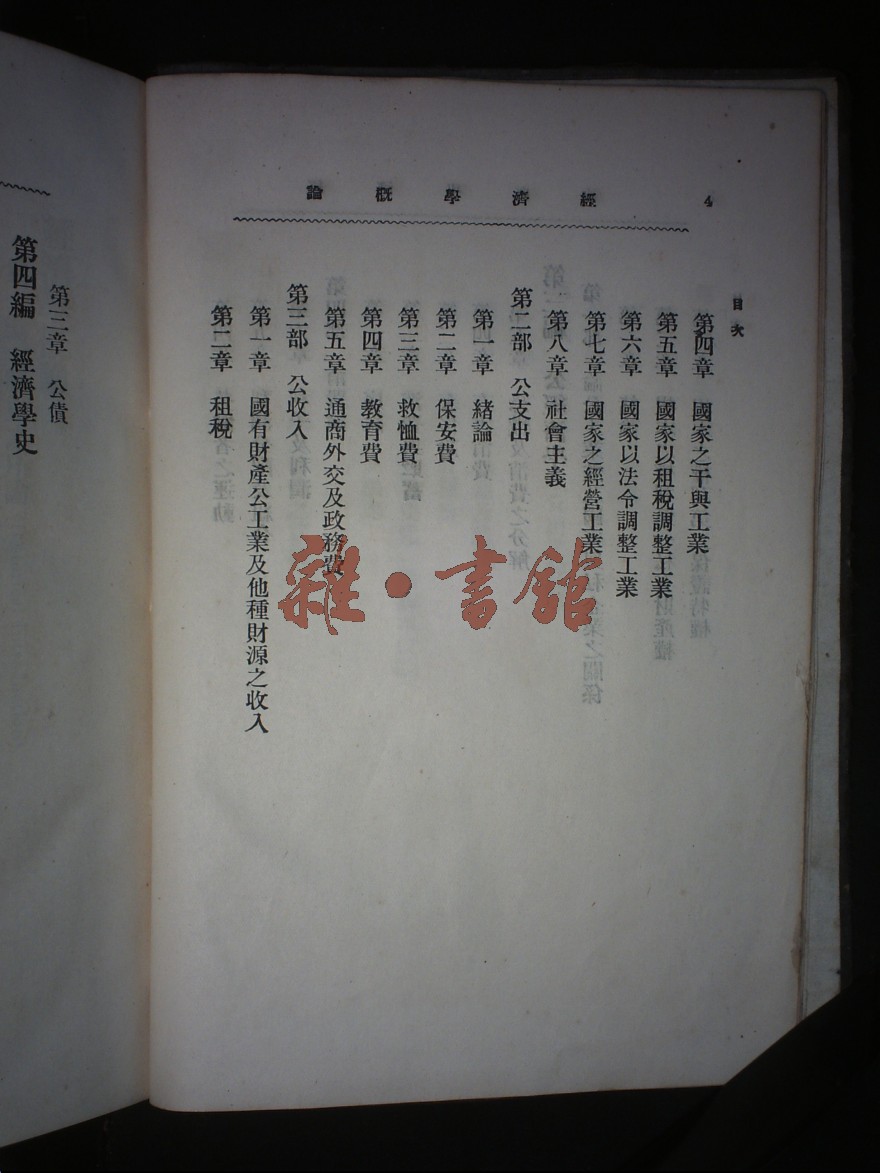 4
經濟學概論
目次
第四章 國家之干與工業
第五章 國家以租稅調整工業
第六章 國家以法令調整工業
第七章 國家之經營工業
第八章 社會主義
第二部 公支出
第一章 緒論
第二章 保安費
第三章 救恤費
第四章 教育費
第五章 通商外交及政務費
第三部 公收入
第一章 國有財產公工業及他種財源之收入
第二章 租稅
第三章 公債
第四編 經濟學史
雜·書館